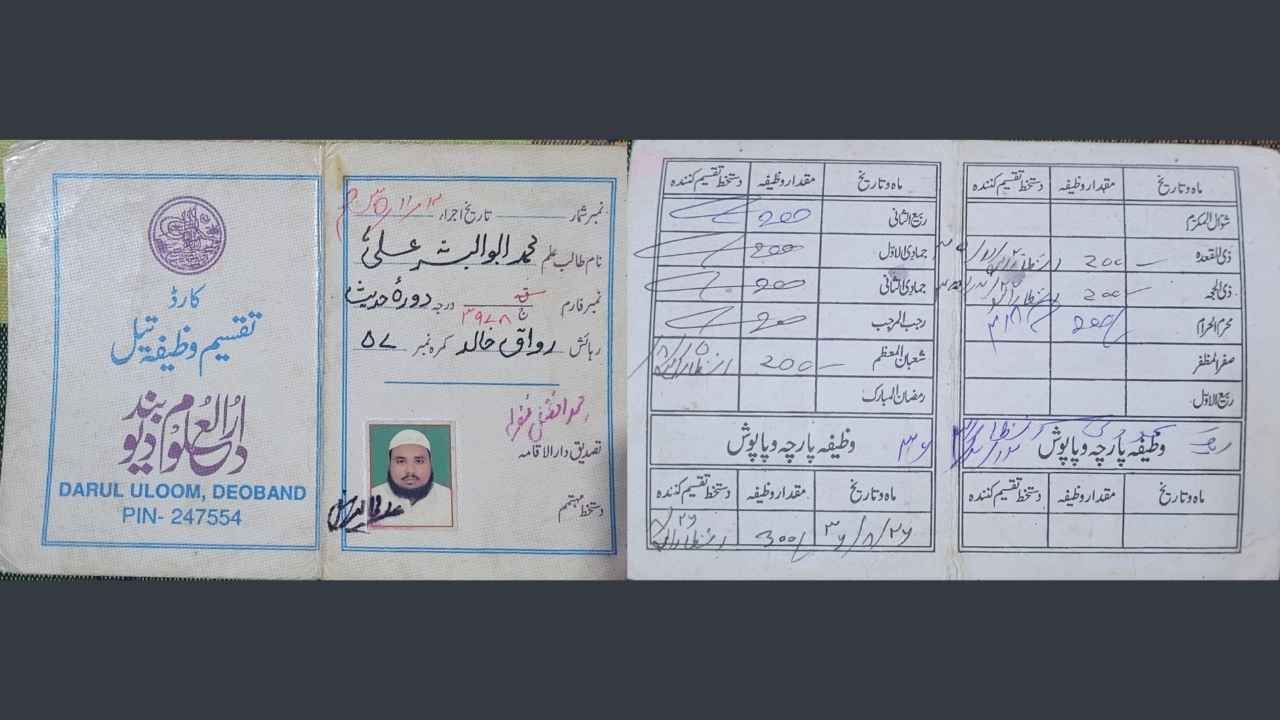 کارڈ
تقسیم وظیفۂ تیل
دارالعلوم دیوبند
DARUL ULOOM, DEOBAND
PIN- 247554
نمبر شمار تاریخ اجراء ۱۳/۱۱
نام طالب علم محمد ابوالبشر علی
نمبر فارم ۳۹۷۸ درجہ دورۂ حدیث
رہائش رواق خالد کمرہ نمبر ۵۷
تصدیق دارالاقامہ
دستخط مہتمم
ماہ و تاریخ مقدار وظیفہ دستخط تقسیم کنندہ
ربیع الثانی 200
جمادی الاول 200
جمادی الثانی 200
رجب المرجب 200
شعبان المعظم 200
رمضان المبارک
وظیفہ پارچہ و پاپوش ۳۶
ماہ و تاریخ مقدار وظیفہ دستخط تقسیم کنندہ
۲۶/۸/۳۶ 300/
ماہ و تاریخ مقدار وظیفہ دستخط تقسیم کنندہ
شوال المکرم
ذی القعدہ 200
ذی الحجہ 200
محرم الحرام 200/
صفر المظفر
ربیع الاول
وظیفہ پارچہ و پاپوش
ماہ و تاریخ مقدار وظیفہ دستخط تقسیم کنندہ